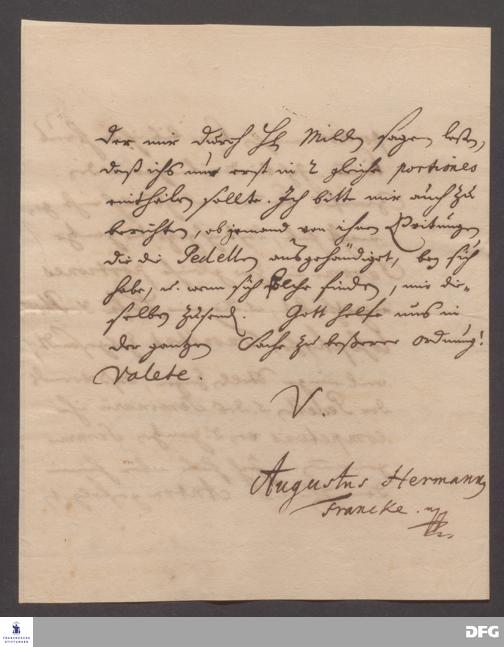 der mir durch H. Milden sagen lest,
daß ichs nur erst in 2 gleiche portiones
eintheilen sollte. Ich bitte mir auch zu
berichten, ob jemand von ihnen Quitungen
die die Pedellen ausgehändiget, bey sich
habe, u. wenn sich solche finden, mir die-
selben zusend. Gott helfe uns in
der gantzen Sache zu beßerer ordnung!
Valete.
V.
Augustus Hermann
Francke.
FRANCKESCHE
STIFTUNGEN
DFG